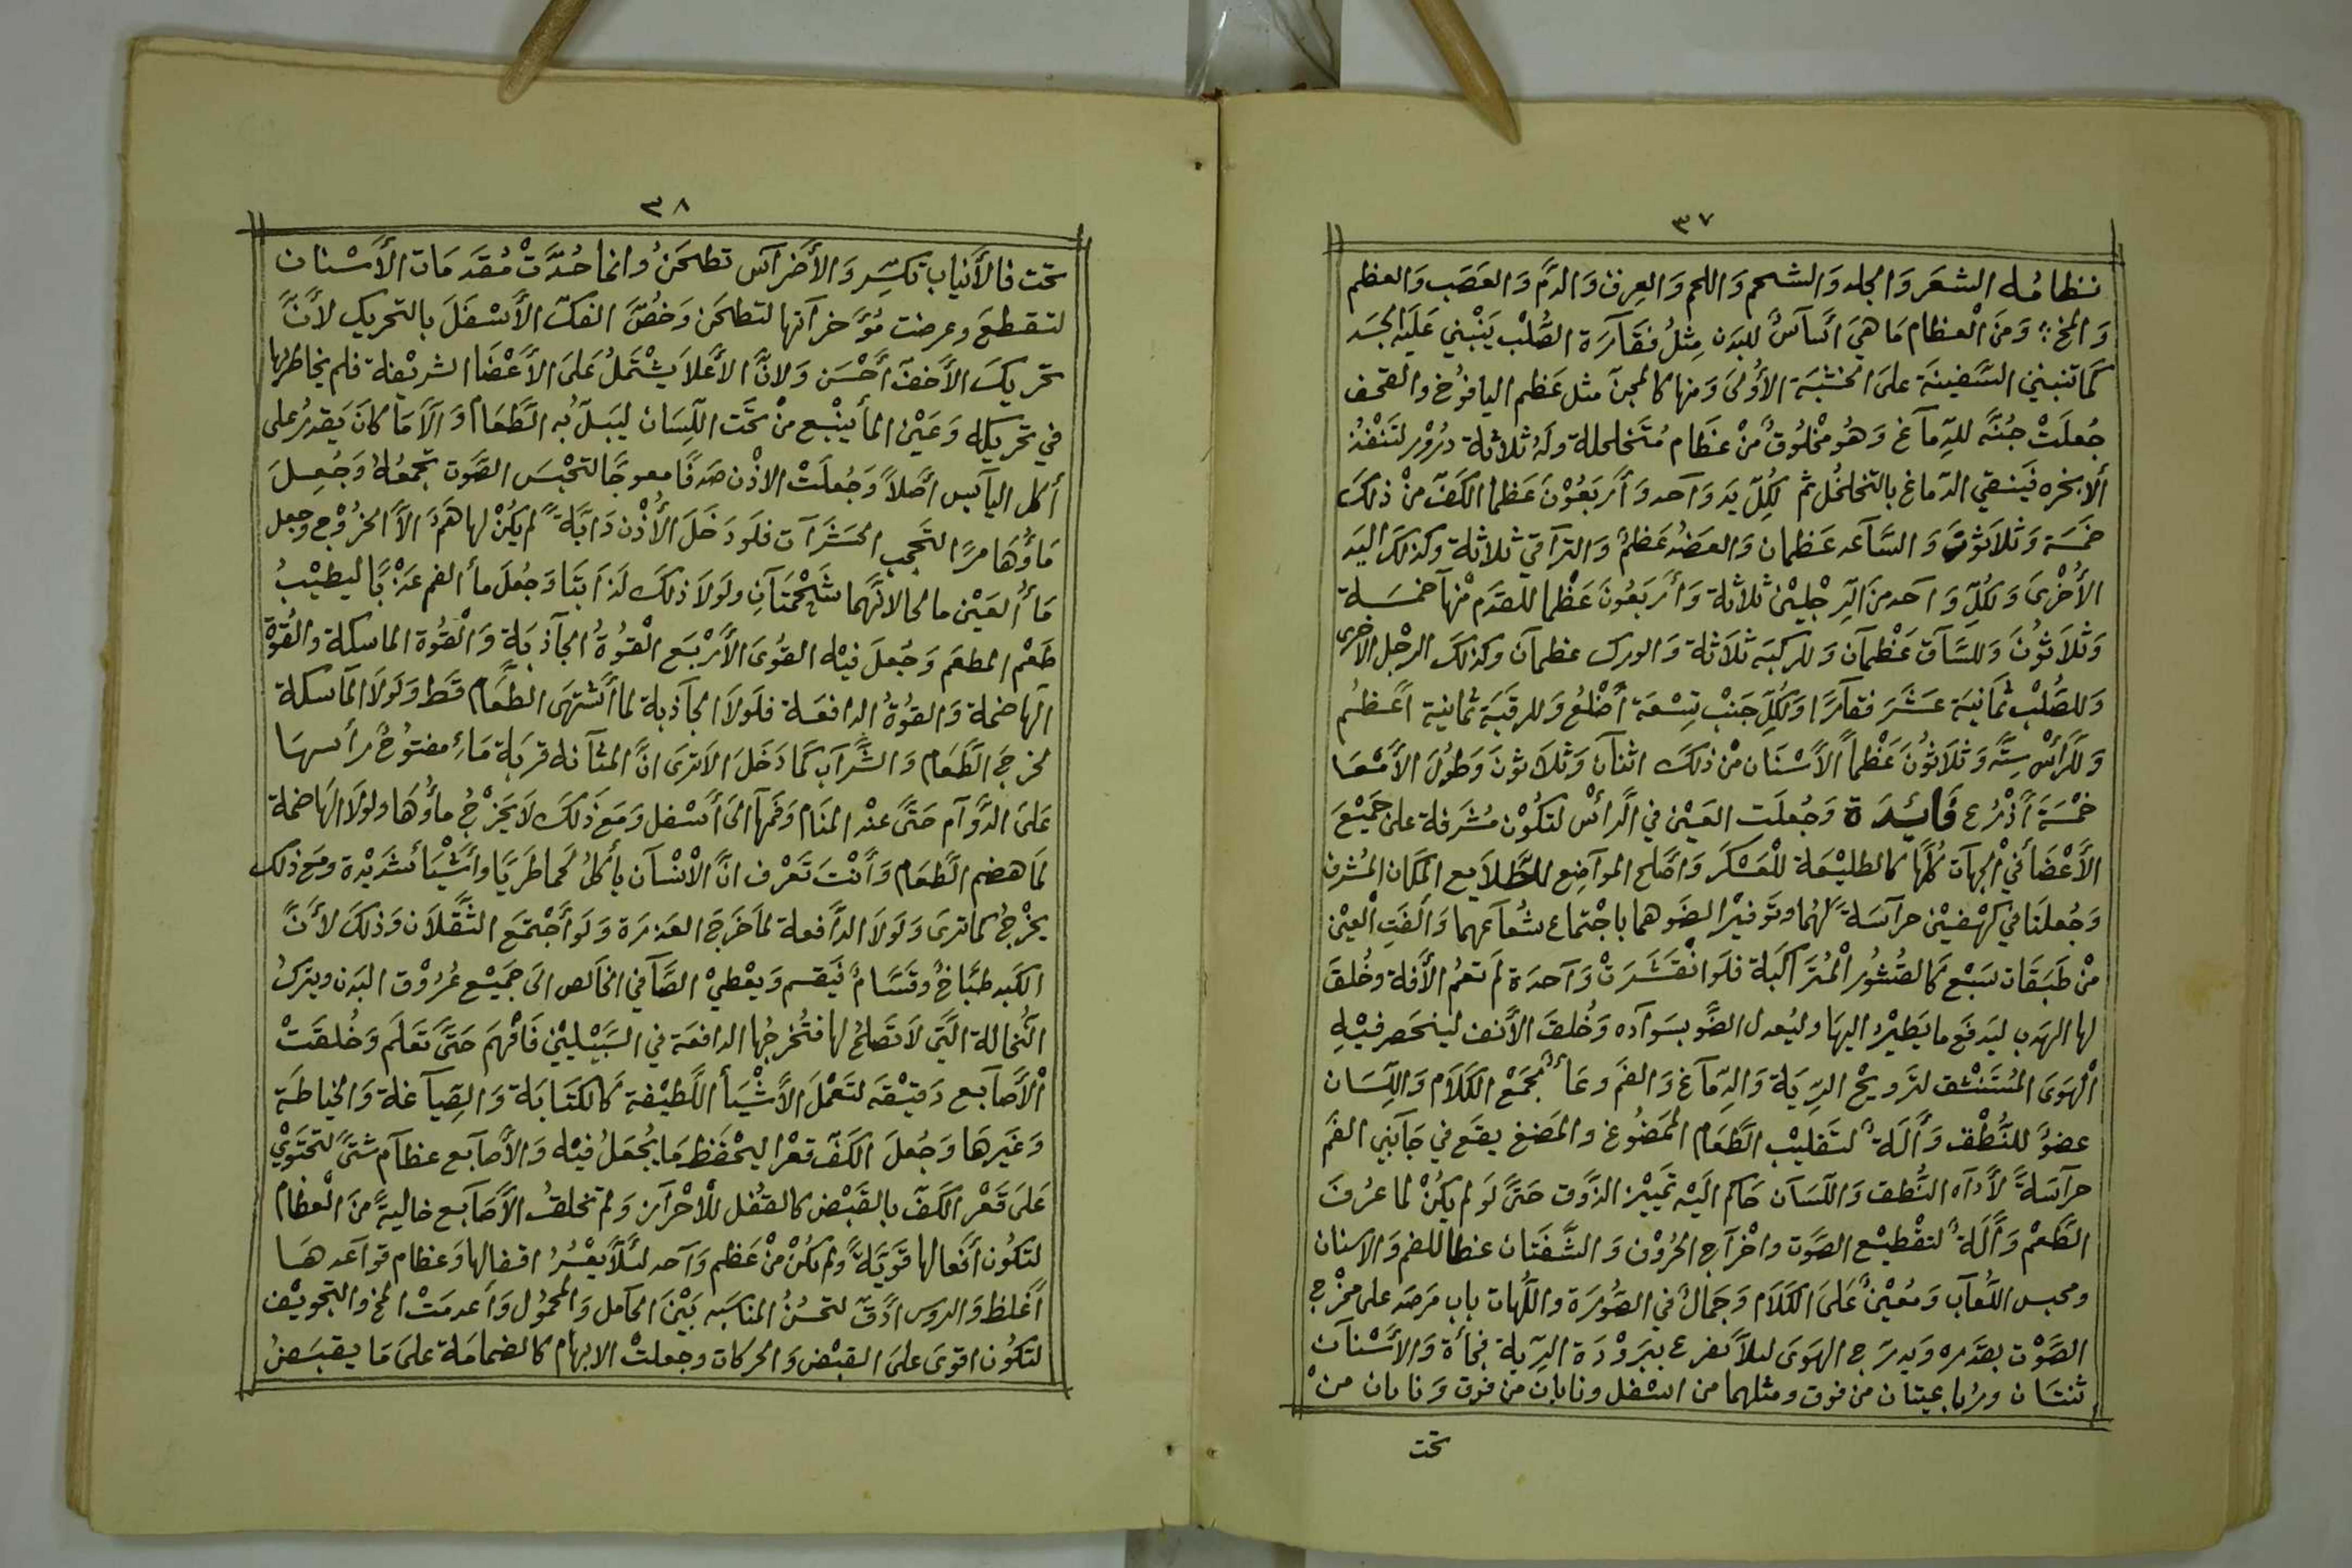 ٣٧
نظامُه الشعَر وَالجلد وَالشحم وَاللحم وَالعِرق وَالدَّم وَالعَصَب وَالعظم
وَالمخ؛ وَمنَ الْعظام مَا هيَ أسَاسٌ للبدَن مِثلُ فقَارَة الصُّلْب يَنْبني عَلَيه الجسَد
كما تنبني السَّفينَة علىَ الخشَبَة الأولىَ وَمنها كالمجنّ مثل عَظم اليافوُخ والقحف
جُعلَتْ جُنَّه للدِّماَغ وَهُو مخْلوُقٌ منْ عظَام مُتَخلخلة ولهُ ثلاثة دُروْز لتَنْفُذ
ألابخره فيَنقي الدّماغ بالتخلخُل ثم لكِلّ يَد وَاحد وَأرَبَعُوْنَ عَظما الكَفّ منْ ذلكَ
خَمسَة وَثلاَثوْنَ وَالسَّاعد عَظمان وَالعضُد عَظمٌ وَالتراقيْ ثلاثة وكذلكَ اليَد
الأُخْرىَ وَلكُلّ وَاحد منَ الرِّجْليْن ثلاثة وَأرَبَعُونَ عَظْما للقدَم مْنهَا خمسَة
وَثلاَثوُنَ وَللسَّاق عَظْمان وَللركبَه ثَلاَثة وَالورك عظمان وكذلكَ الرجْل الأخرى
وَللصُّلْب ثمَانيَة عَشَرَ فقاَرًا وَلكُلّ جَنْب تِسْعَة أضْلعُ وَللرقَبَة ثمانية أعَظُم
وَللرَّأسْ سِتَّه وَثلَاَثوُنَ عَظْماً الأسْنَان منْ ذلكَ اثنَان وَثلَاَثونَ وَطوُلَ الأمْعَا
خمْسَة أَذْرُع فَائِدَة وَجُعلَت العَيْن في الرأسْ لتكُوْن مُشرَفة على جَميْعَ
الأعْضَأ فيْ الجهاَت كلّها كالطليْعَة للْعَسْكَر وَاصَلح الموَاضِع للطلاَيع المكان المُشرف
وَجُعلتَا فيْ كهْفيْن حراَسَةً لهُما وتَوفيْرا لضَوهما باجْتماع شعُاعهما وَالفَتِ الْعيْن
منْ طَبَقَات سَبْع كالقشُور المُترَاكَبة فلَو انْقشَرَتْ وَاحدَة لَم تعمُ الأفة وخُلقَ
لها الهدب ليَدفَع ما يَطيْرُ اليهَا وليُعدل الضَّو بسَواده وَخُلقَ الأنف لينحَصر فيْهِ
الْهوَىَ المُسْتَنْشق لترَويحْ الرِّيَة وَالدِّماَغ وَالفمَ وعَاءٌ لمجمَعْ الكلَام وَاللِّسَان
عضوٌ للنُّطْق وَأَلَةٌ لتَقليْب الطَّعَام الممضُوغ والمَضغ يقَع في جَانِبي الفَمّ
حراَسَةً لأدَاه النُّطق وَاللّسَان حَاكم اليَه تمَيِيز الذَّوق حَتىَّ لَو لم يكُنْ لما عرُفَ
الطَّعْم وَأَلَةٌ لتقْطيْع الصَّوت واخْراَج الحُروْف وَالشَّفَتان غطا للفم وَالاسنان
ومحبس اللُّعَاب وَمُعْينٌ عَلىَ الكلَام وَجَمالٌ في الصُّورَة واللَّهات باب مَرصَد على مخرْج
الصَّوْت بقدَره وَيدرَج الهَوَىَ ليلَا تفرع ببَروْدَة الرِّية فجأة وَالأسْناَن
ثنتَان ورُباعيتان من فوق ومثلهما من اسْفل ونابان من فوق وَنابان من
تحت
٣٨
تحت فالأنياب تكسِّر وَالأضراَس تطحَنُ وانما حُدَّتْ مُقدَمَات الأسْنان
لتقطعَ وعرضت مُؤَخراتها لتطحَن وَخُصَّ الفكّ الأسْفلَ بالتحريك لأنَّ
تحَريكَ الأخفّ أحْسَن وَلانَّ الأعلاَ يشْتَملُ عَلىَ الأعْضَا الشريْفة فلم يخاطربها
في تحريكه وَعَيْن المأ ينْبُع منْ تحَت اللِّسَان ليَبلّ به الطَّعَام وَألَا مَا كانَ يَقدرُ على
أكل اليَابس أصَلاً وَجُعلَتْ الاذْن صَدفًا معوجًّا لتحْبسَ الصَّوت تجمعُه وَجُعِلَ
مَاؤُهَا مرًا لتحجب الحشَراَت فلَو دَخَلَ الأُذْن دَابَّةً لم يكُنْ لها هَمٌّ الّا الخرُوْج وجعل
مَأُ العَيْن مالحا لانَّهما شَحْمتاَنِ ولَولاَ ذلكَ لذَابتَا وَجُعلَ مأ الفم عَذْبًا ليطيْبُ
طَعْم المطعَم وَجُعلَ فيْه القُوىَ الأرْبَع الْقوُةُ الجاَذبَة وَالْقُوة الماسكة والقُوة
الهاضمة وَالقُوةُ الدافعَة فلَولاَ الجاَذبة لما أشْتهىَ الطَّعَام قَط وَلَولاَ الماَسكة
لخرجَ الطَّعَام وَالشَّراَب كما دَخَلَ الاَترىَ انَّ المثَانه قربَة مَاءِ مفتوُحٌ رأسهَا
عَلىَ الدَّوَام حَتىَّ عنْد المنَام وَفمُها الىَ أسْفل وَمَعَ ذَلكَ لاَ يَخرْجُ مأؤُهَا ولولاَ الهَاضمة
لمَا هضم الطَّعَام وَأنْتَ تَعْرف انَّ الأنْسَان يأكلُ لحما طَرَيًا وأشْيَأ شَديْدة ومَع ذلك
يخْرجُ كما ترىَ وَلَولاَ الدَّافعة لماَ خَرجَ العَذرَة وَلَو أجْتمَع الثَّقَلاَن وَذلكَ لأنَّ
الكبَد طبَّاخٌ وقسَّامٌ فيَقسم وَيعْطيْ الصَّافي الخاَلص الىَ جَميْع عُروْق البَدن ويتركُ
النُّخالة الَّتيَ لاَ تَصَلحُ لها فتُخرجُها الدافعَة في السَّبيْليْن فَافْهمَ حَتىَّ تَعَلمَ وَخُلقَتْ
الْأصَابع دَقيْقَه لتَعْملَ الأشْيَأ اللَّطيْفة كالكتَابَة وَالصِّياَغة وَالخياطَة
وَغَيرَهَا وَجُعلَ الكَفّ قعْرا ليحْفظ مَا يُجْعَلُ فيْه وَالأصَابَع عظاَم شتىَّ لتحَتويْ
عَلىَ قَعْر الكَفّ بالقَبْض كالقفْل للأحْراَز وَلم تخلقُ الأصَابَع خاليةً منَ الْعظام
لتَكُون أفعَالها قَويَةً ولم تكُنْ منْ عَظم وَاحد لئَلّا يعْسُرُ اقفالها وَعظام قواعدهَا
أغَلظ وَالروس ادَقّ لتحسُنُ المناسَبه بَيْنَ الحاَمل وَالمحموُل وَأعدمَتْ المخ والتجويْف
لتَكُون اقوىَ علىَ القبْض وَالحركات وجعلتْ الابهام كالضمامَة علىَ مَا يقبَضُ